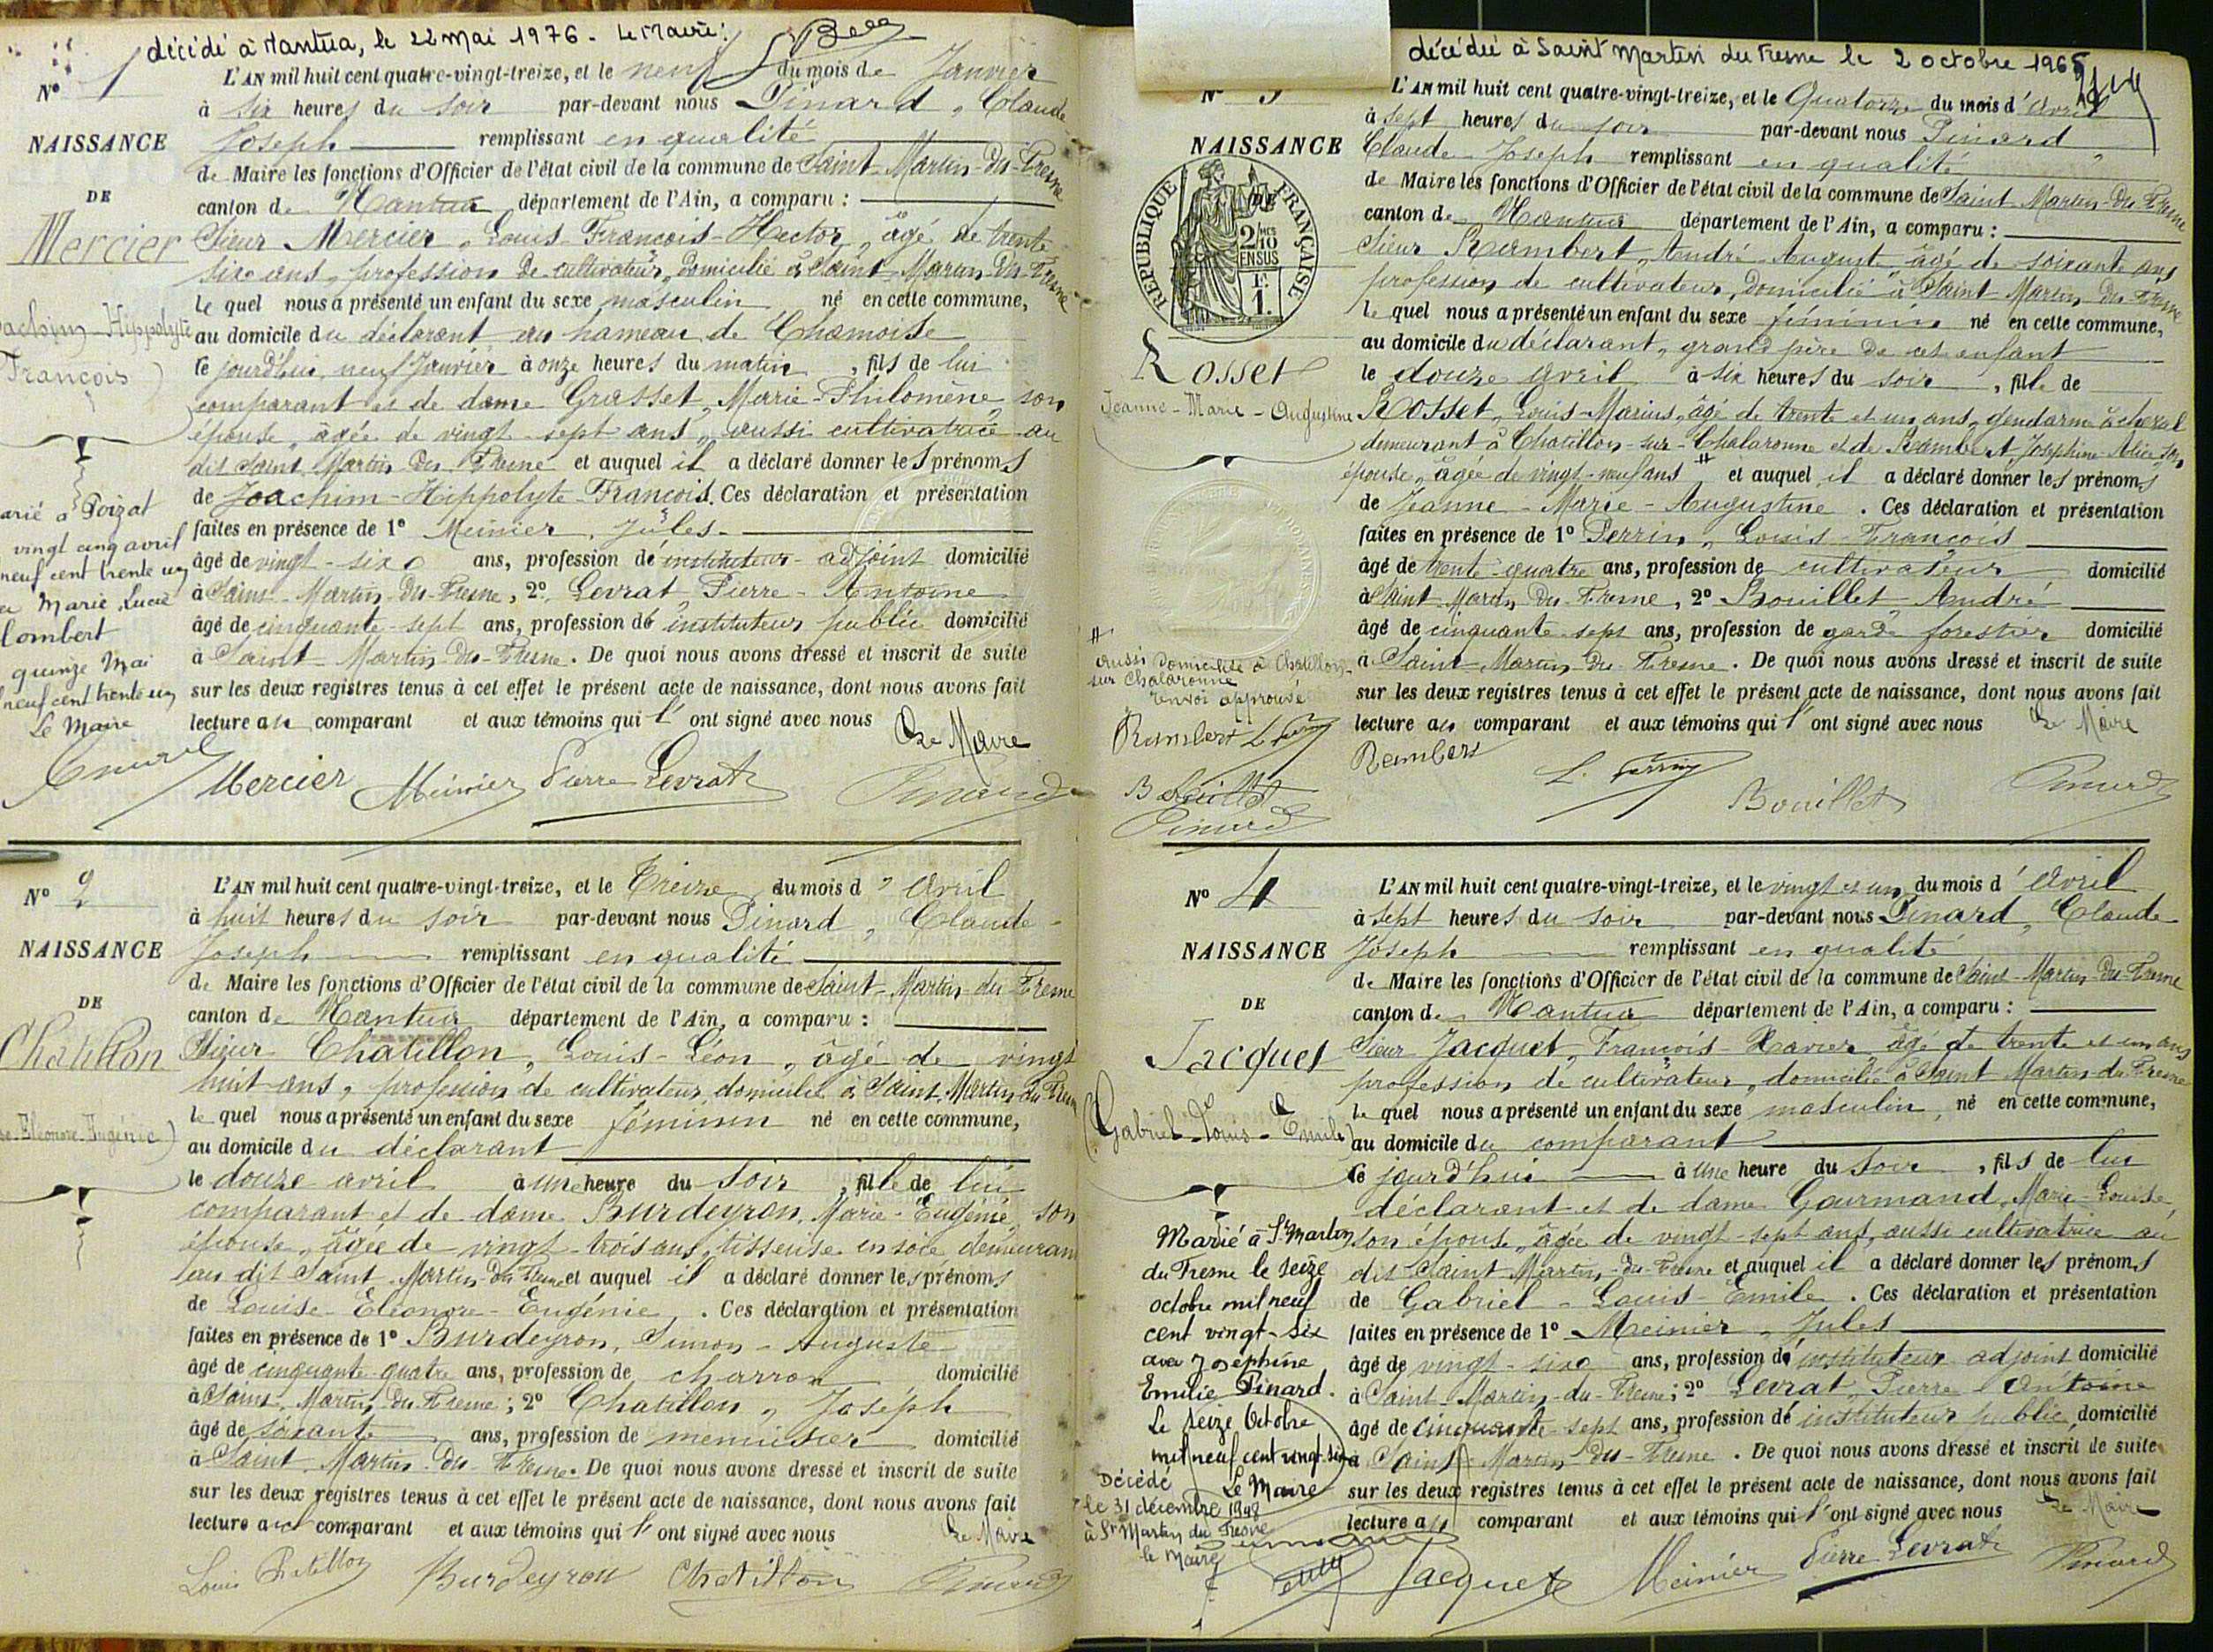 décédé à Nantua, le 22 mai 1976 - Le Maire :
N° 1
NAISSANCE
DE
Mercier
Joachim-Hippolyte
François)
L'AN mil huit cent quatre-vingt-treize, et le neuf du mois de Janvier
à six heures du soir par-devant nous Pinard, Claude
Joseph remplissant en qualité
de Maire les fonctions d'Officier de l'état civil de la commune de Saint-Martin-du-Fresne
canton de Nantua département de l'Ain, a comparu :
Sieur Mercier, Louis-François-Hector, âgé de trente
six ans, profession de cultivateur, domicilié à Saint-Martin-du-Fresne
le quel nous a présenté un enfant du sexe masculin né en cette commune,
au domicile du déclarant au hameau de Chamoise
ce jourd'hui, neuf Janvier à onze heures du matin, fils de lui
comparant et de dame Grasset, Marie-Philomène, son
épouse, âgée de vingt-sept ans, aussi cultivatrice au
dit Saint Martin-du-Fresne et auquel il a déclaré donner les prénoms
de Joachim-Hippolyte-François. Ces déclaration et présentation
faites en présence de 1° Meinier, Jules
âgé de vingt-six ans, profession d'instituteur-adjoint domicilié
à Saint-Martin-du-Fresne, 2° Levrat Pierre-Antoine
âgé de cinquante-sept ans, profession d'instituteur public domicilié
à Saint-Martin-du-Fresne. De quoi nous avons dressé et inscrit de suite
sur les deux registres tenus à cet effet le présent acte de naissance, dont nous avons fait
lecture au comparant et aux témoins qui l'ont signé avec nous
Le Maire
Mercier Meinier Pierre Levrat Pinard
arié à Poizat
vingt cinq avril
neuf cent trente un
Marie Lucie
quinze Mai
neuf cent trente un
Le Maire
N° 2
NAISSANCE
DE
Chatillon
Eléonore-Eugénie)
L'AN mil huit cent quatre-vingt-treize, et le Treize du mois d'Avril
à huit heures du soir par-devant nous Pinard, Claude-
Joseph remplissant en qualité
de Maire les fonctions d'Officier de l'état civil de la commune de Saint-Martin-du-Fresne
canton de Nantua département de l'Ain, a comparu :
Sieur Chatillon, Louis-Léon, âgé de vingt
huit ans, profession de cultivateur, domicilié à Saint-Martin-du-Fresne
le quel nous a présenté un enfant du sexe féminin né en cette commune,
au domicile du déclarant
le douze avril à une heure du soir, fille de lui
comparant et de dame Burdeyron, Marie-Eugénie, son
épouse, âgée de vingt-trois ans, tisseuse en soie demeurant
au dit Saint-Martin-du-Fresne et auquel il a déclaré donner les prénoms
de Louise-Eléonore-Eugénie. Ces déclaration et présentation
faites en présence de 1° Burdeyron, Simon-Auguste
âgé de cinquante-quatre ans, profession de charron domicilié
à Saint-Martin-du-Fresne ; 2° Chatillon, Joseph
âgé de soixante ans, profession de menuisier domicilié
à Saint-Martin-du-Fresne. De quoi nous avons dressé et inscrit de suite
sur les deux registres tenus à cet effet le présent acte de naissance, dont nous avons fait
lecture au comparant et aux témoins qui l'ont signé avec nous
Le Maire
Louis Chatillon Burdeyron Chatillon Pinard
décédée à Saint Martin du Fresne le 2 octobre 1965
N° 3
NAISSANCE
DE
REPUBLIQUE FRANÇAISE
2/10
EN SUS
1F.
Rosset
Jeanne-Marie-Augustine
L'AN mil huit cent quatre-vingt-treize, et le Quatorze du mois d'avril
à sept heures du soir par-devant nous Pinard,
Claude-Joseph remplissant en qualité
de Maire les fonctions d'Officier de l'état civil de la commune de Saint-Martin-du-Fresne
canton de Nantua département de l'Ain, a comparu :
Sieur Rambert, André Auguste âgé de soixante ans
profession de cultivateur, domicilié à Saint-Martin-du-Fresne
le quel nous a présenté un enfant du sexe féminin né en cette commune,
au domicile du déclarant, grand père de cet enfant
le douze avril à six heures du soir, fille de
Rosset, Louis-Marius, âgé de trente et un ans, gendarme à cheval
demeurant à Chatillon-sur-Chalaronne et de Rambert, Joséphine-Alice son
épouse, âgée de vingt-neuf ans # et auquel il a déclaré donner les prénoms
de Jeanne-Marie-Augustine. Ces déclaration et présentation
faites en présence de 1° Perrin, Louis-François
âgé de trente-quatre ans, profession de cultivateur domicilié
à Saint-Martin-du-Fresne, 2° Bouillet André
âgé de cinquante sept ans, profession de garde forestier domicilié
à Saint-Martin-du-Fresne. De quoi nous avons dressé et inscrit de suite
sur les deux registres tenus à cet effet le présent acte de naissance, dont nous avons fait
lecture au comparant et aux témoins qui l'ont signé avec nous
Le Maire
Rambert L. Perrin Bouillet Pinard
#
aussi domiciliée à Chatillon-
sur Chalaronne
renvoi approuvé
Rambert L. Perrin
Bouillet
Pinard
N° 4
NAISSANCE
DE
Jacquet
(Gabriel-Louis-Emile)
L'AN mil huit cent quatre-vingt-treize, et le vingt et un du mois d'Avril
à sept heures du soir par-devant nous Pinard, Claude-
Joseph remplissant en qualité
de Maire les fonctions d'Officier de l'état civil de la commune de Saint-Martin-du-Fresne
canton de Nantua département de l'Ain, a comparu :
Sieur Jacquet, François-Xavier, âgé de trente et un ans
profession de cultivateur, domicilié à Saint Martin-du-Fresne
le quel nous a présenté un enfant du sexe masculin, né en cette commune,
au domicile du comparant
ce jourd'hui à une heure du soir, fils de lui
déclarant et de dame Gourmand, Marie-Louise,
son épouse, âgée de vingt-sept ans, aussi cultivatrice au
dit Saint Martin-du-Fresne et auquel il a déclaré donner les prénoms
de Gabriel-Louis-Emile. Ces déclaration et présentation
faites en présence de 1° Meinier, Jules
âgé de vingt-six ans, profession d'instituteur adjoint domicilié
à Saint-Martin-du-Fresne ; 2° Levrat, Pierre Antoine
âgé de cinquante-sept ans, profession d'instituteur public, domicilié
à Saint-Martin-du-Fresne. De quoi nous avons dressé et inscrit de suite
sur les deux registres tenus à cet effet le présent acte de naissance, dont nous avons fait
lecture au comparant et aux témoins qui l'ont signé avec nous
Le Maire
Jacquet Meinier Pierre Levrat Pinard
Marié à St Martin
du Fresne le seize
octobre mil neuf
cent vingt-six
avec Joséphine
Emilie Pinard.
Le seize Octobre
mil neuf cent vingt-six
Le Maire
Décédé
le 31 décembre 1948
à St Martin du Fresne
le Maire